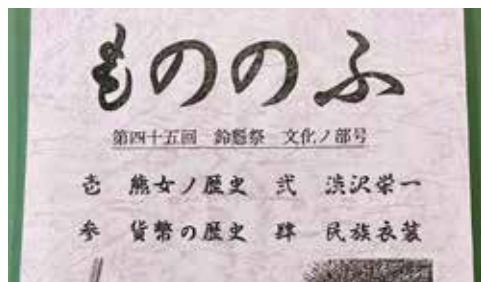 もののふ
第四十五回　鈴懸祭　文化ノ部号
壱　熊女ノ歴史　弐　渋沢栄一
参　貨幣の歴史　肆　民族衣装